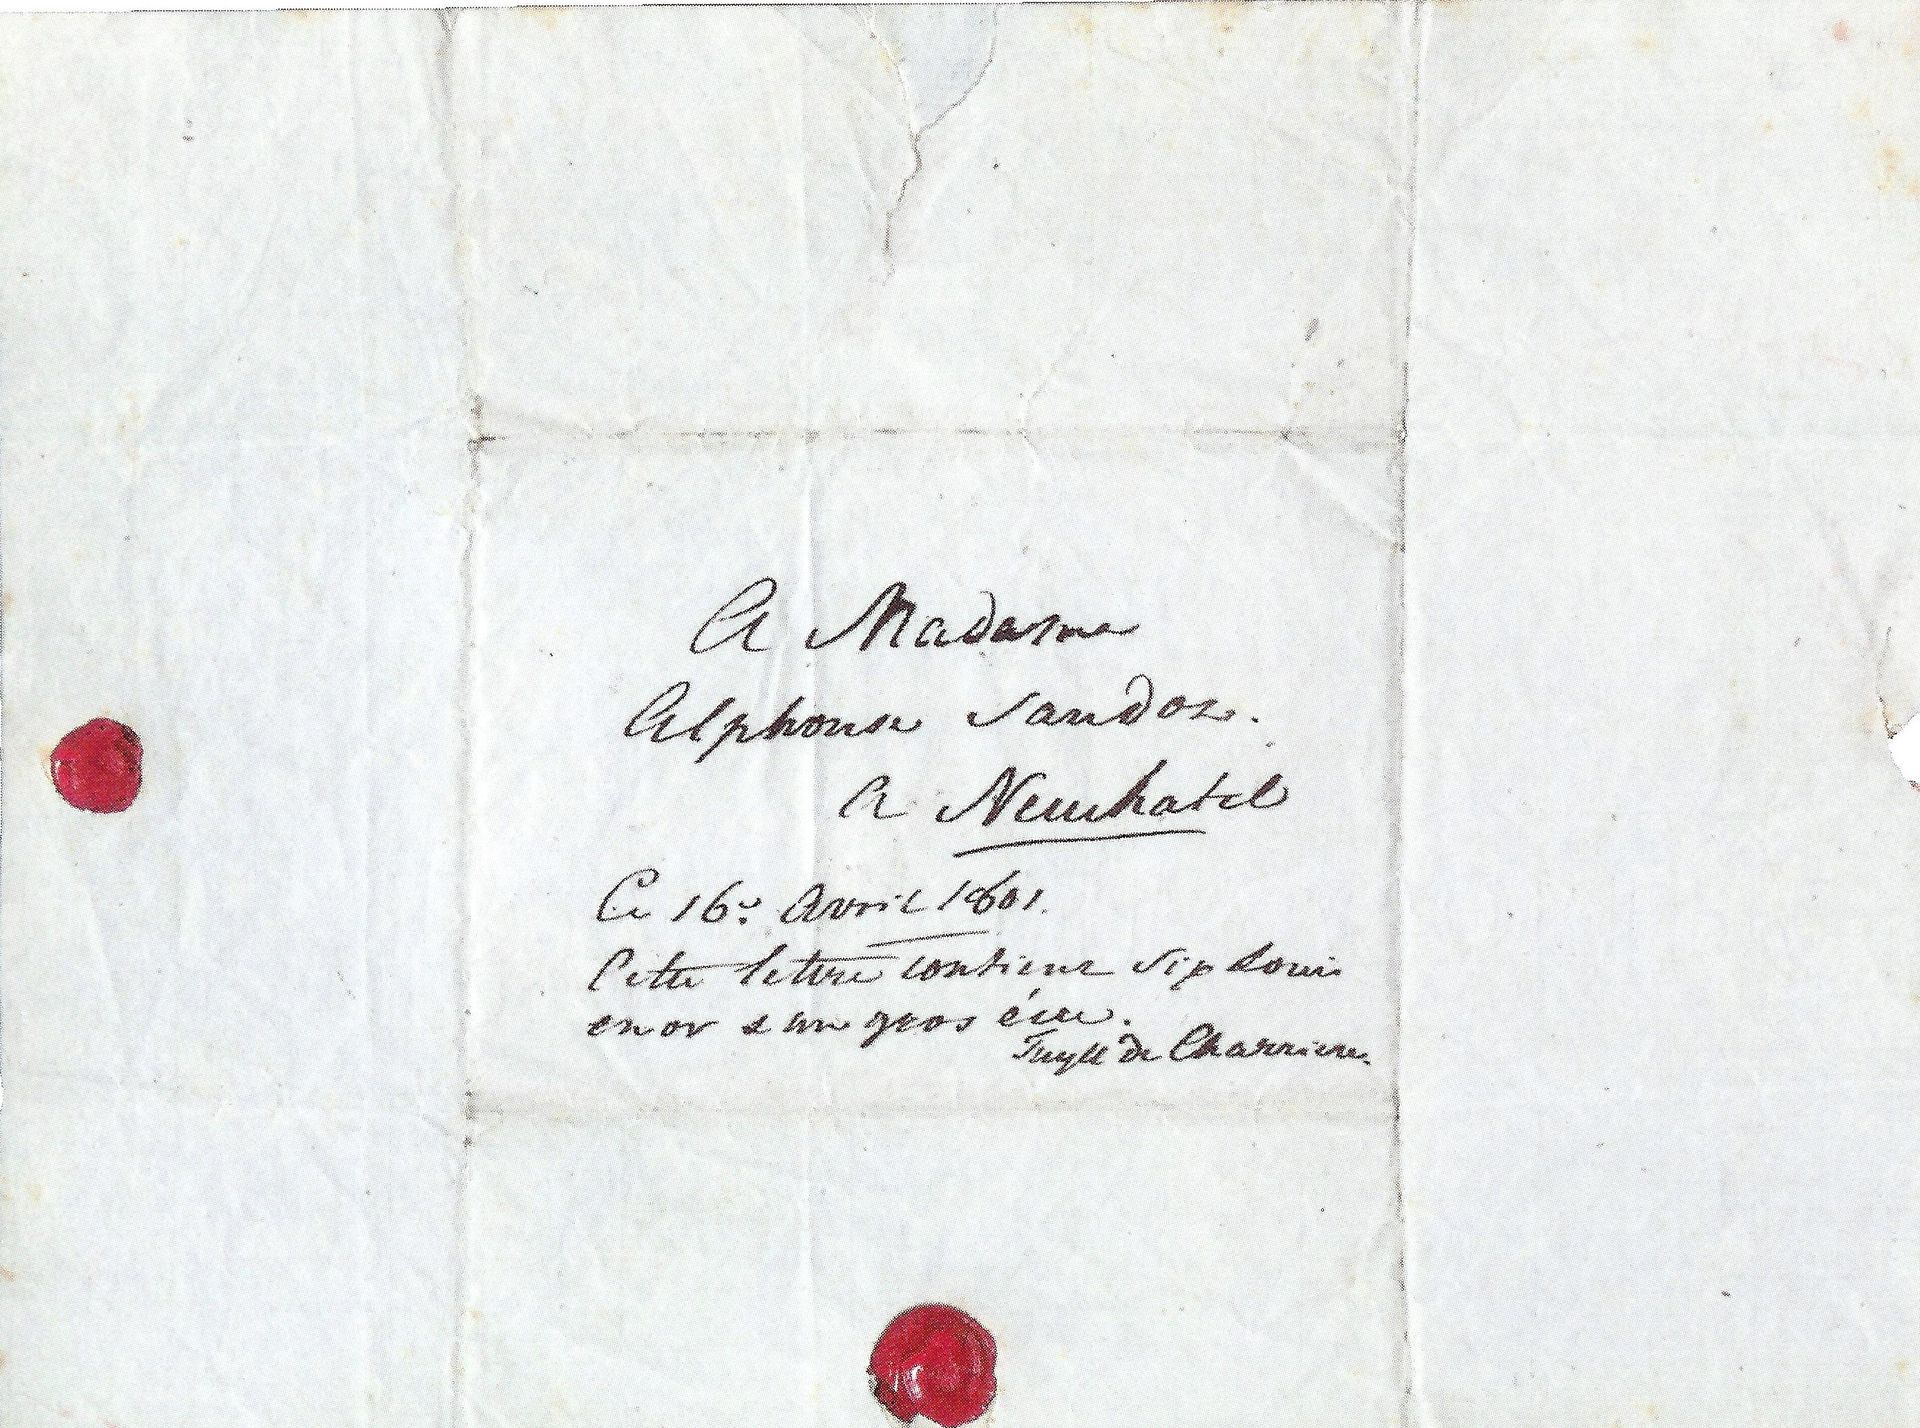 A Madame
Alphonse Sandoz.
a Neuchatel
Ce 16e Avril 1801.
Cette lettre contient six Louis
en or & un gros écu.
Tuyll de Charriere.